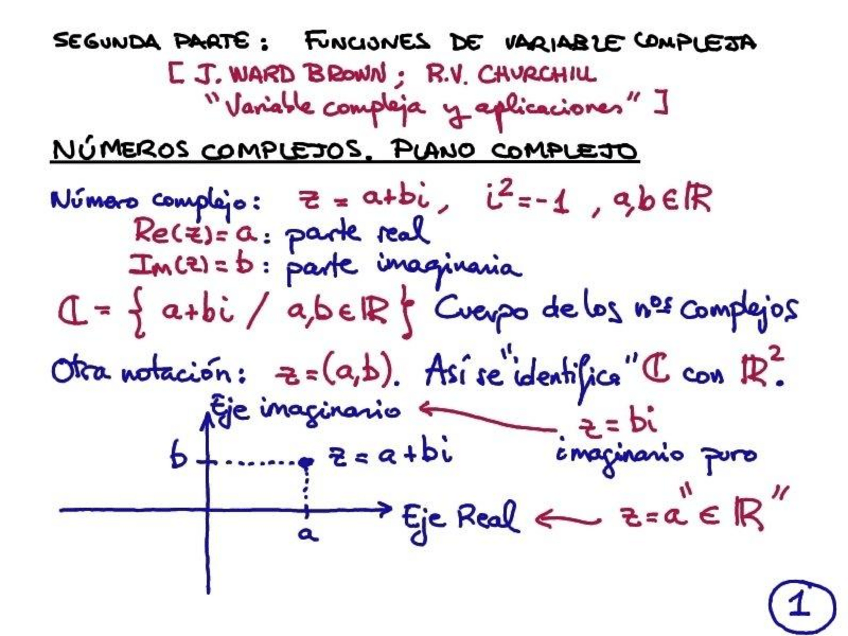 SEGUNDA PARTE: FUNCIONES DE VARIABLE COMPLEJA
[J. WARD BROWN; R.V. CHURCHILL
"Variable compleja y aplicaciones"]
NÚMEROS COMPLEJOS. PLANO COMPLEJO
Número complejo: z = a+bi, i²=-1, a,b∈ℝ
Re(z)=a: parte real
Im(z)=b: parte imaginaria
ℂ = { a+bi / a,b∈ℝ } Cuerpo de los nºs complejos
Otra notación: z=(a,b). Así se "identifica" ℂ con ℝ².
Eje imaginario ← z = bi
imaginario puro
b z = a+bi
Eje Real ← z=a "∈ ℝ"
a
1